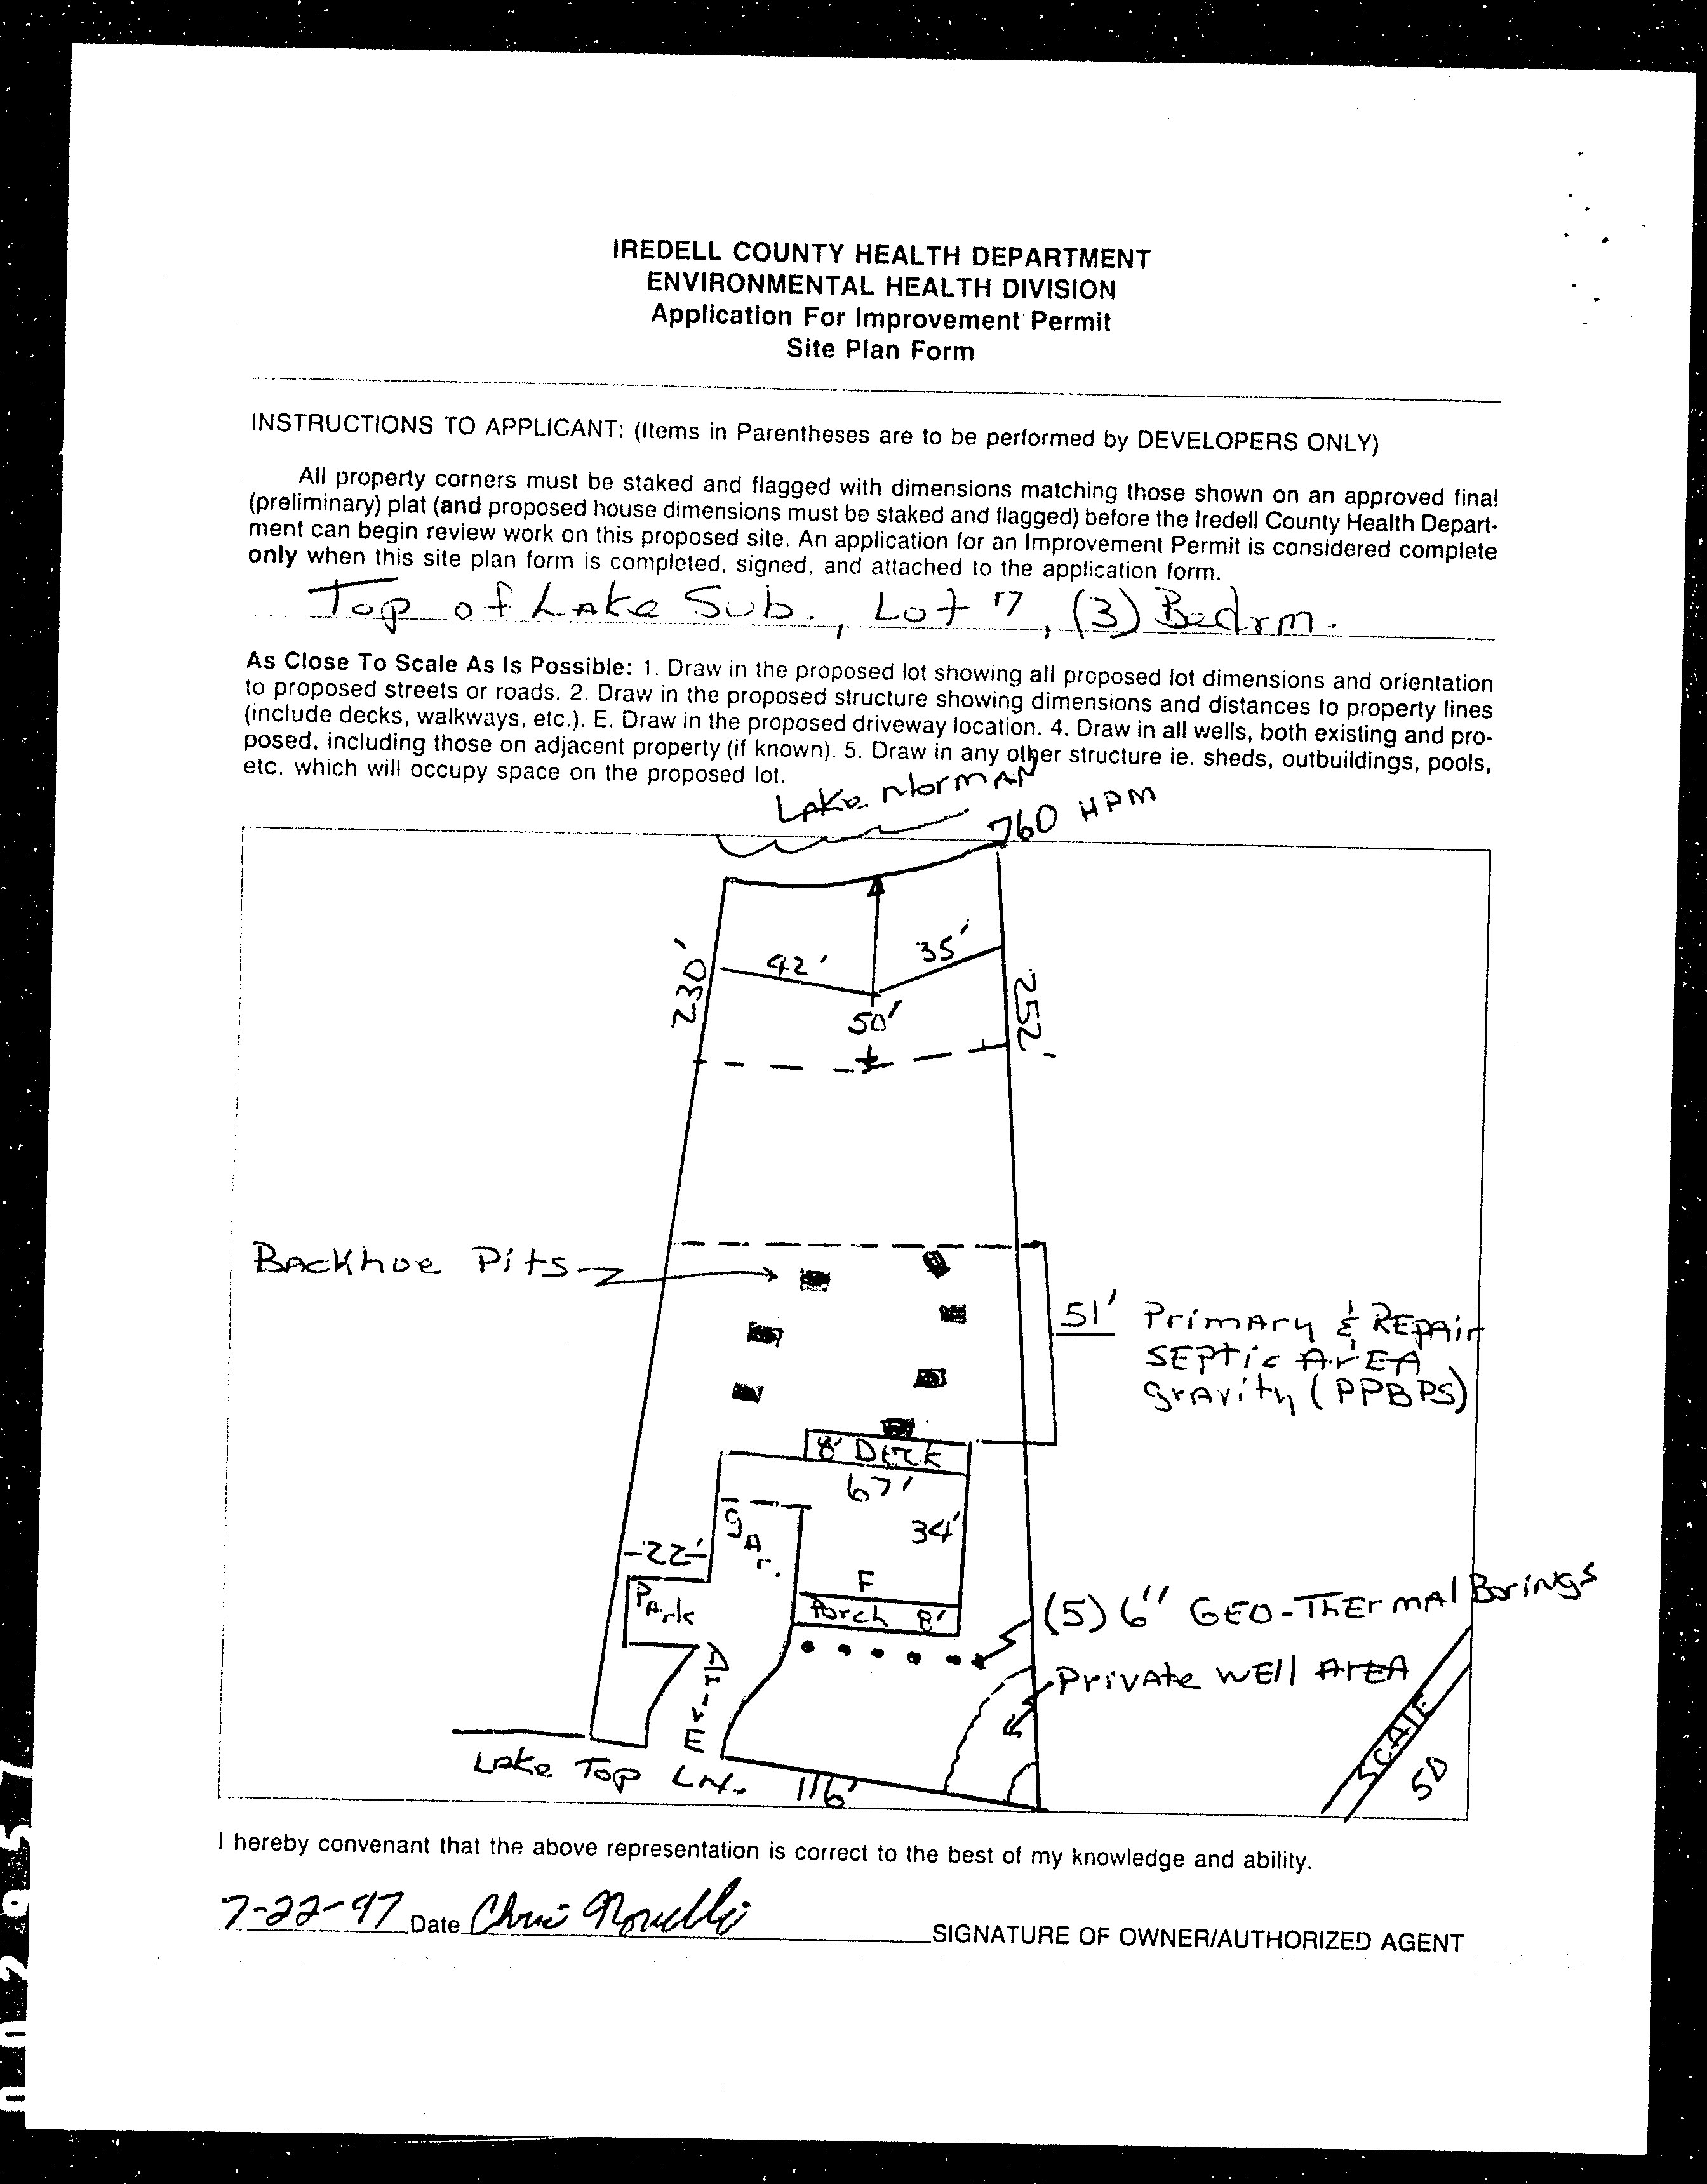 IREDELL COUNTY HEALTH DEPARTMENT
ENVIRONMENTAL HEALTH DIVISION
Application For Improvement Permit
Site Plan Form
INSTRUCTIONS TO APPLICANT: (Items in Parentheses are to be performed by DEVELOPERS ONLY)
All property corners must be staked and flagged with dimensions matching those shown on an approved final
(preliminary) plat (and proposed house dimensions must be staked and flagged) before the Iredell County Health Depart-
ment can begin review work on this proposed site. An application for an Improvement Permit is considered complete
only when this site plan form is completed, signed, and attached to the application form.
Top of Lake Sub., Lot 17, (3) Bedrm.
As Close To Scale As Is Possible: 1. Draw in the proposed lot showing all proposed lot dimensions and orientation
to proposed streets or roads. 2. Draw in the proposed structure showing dimensions and distances to property lines
(include decks, walkways, etc.). E. Draw in the proposed driveway location. 4. Draw in all wells, both existing and pro-
posed, including those on adjacent property (if known). 5. Draw in any other structure ie. sheds, outbuildings, pools,
etc. which will occupy space on the proposed lot.
Lake Norman
760 HPM
230'
42'
35'
252'
50'
Backhoe Pits
51' Primary & REPAir
SEPtic ArEA
gravity (PPBPS)
8' Deck
67'
gAr.
34'
22'
F
PArk
Porch 8'
(5) 6" GEO-ThErmAl Borings
Private WEll ArEA
DrivE
SCAlE
50
Lake Top LN.
116'
I hereby convenant that the above representation is correct to the best of my knowledge and ability.
7-22-97 Date Chris SIGNATURE OF OWNER/AUTHORIZED AGENT